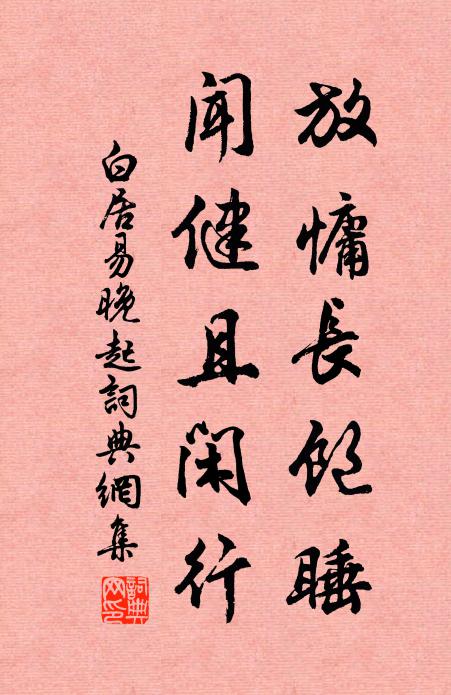 放慵長飽睡
聞健且閑行
白居易晚起詞典網集
詞典网印